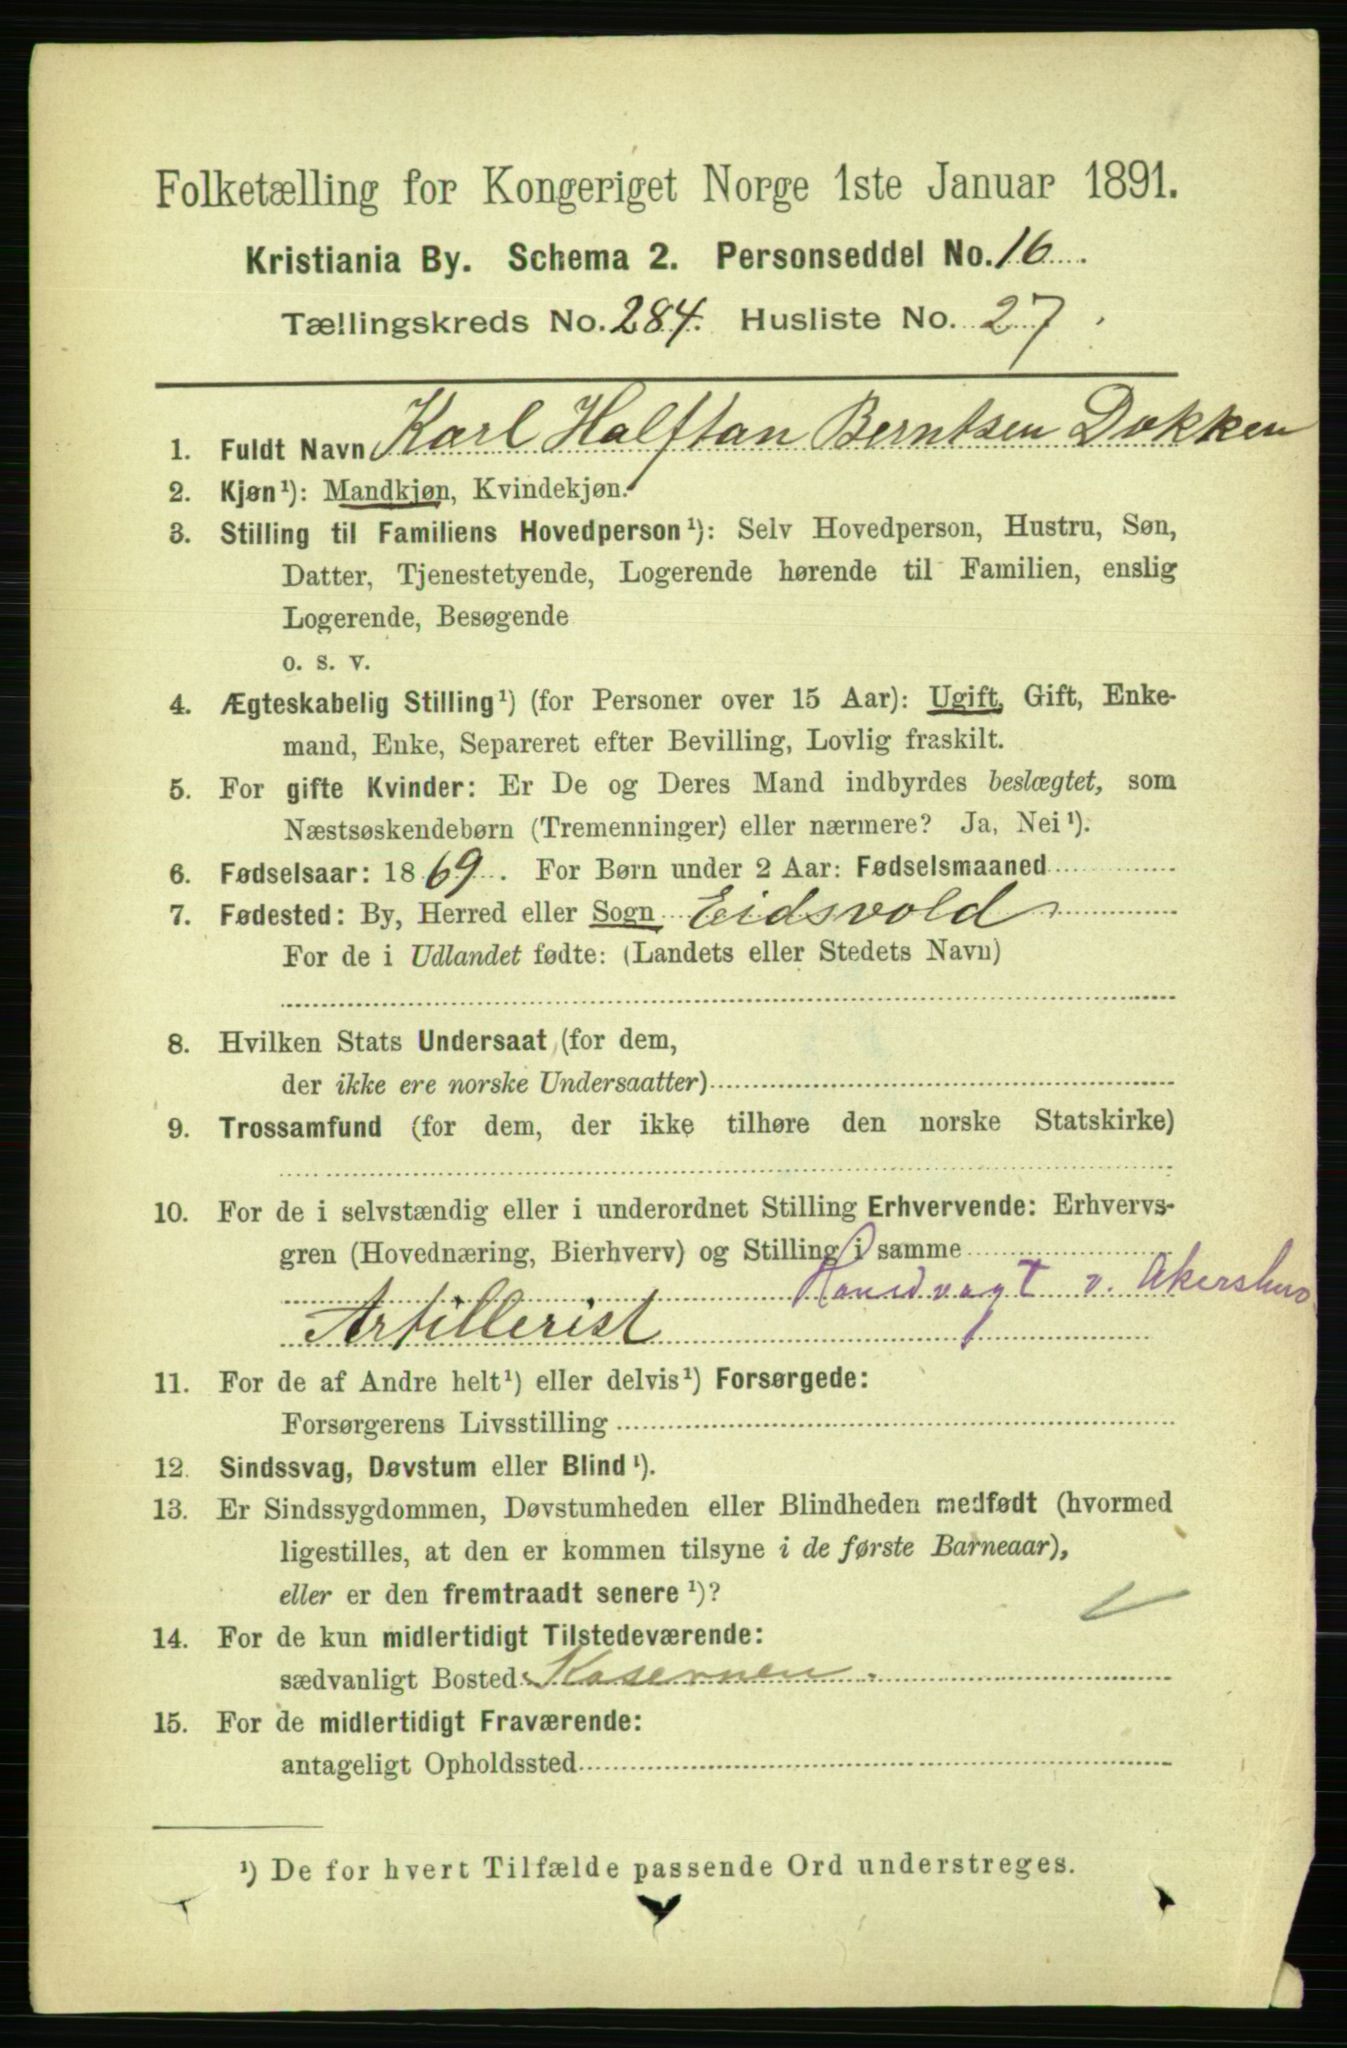 Folketælling for Kongeriget Norge 1ste Januar 1891.
Kristiania By. Schema 2. Personseddel No. 16
Tællingskreds No. 284. Husliste No. 27
1. Fuldt Navn Karl Halftan Berntsen Dokken
2. Kjøn¹): Mandkjøn, Kvindekjøn.
3. Stilling til Familiens Hovedperson¹): Selv Hovedperson, Hustru, Søn,
Datter, Tjenestetyende, Logerende hørende til Familien, enslig
Logerende, Besøgende
o. s. v.
4. Ægteskabelig Stilling¹) (for Personer over 15 Aar): Ugift, Gift, Enke-
mand, Enke, Separeret efter Bevilling, Lovlig fraskilt.
5. For gifte Kvinder: Er De og Deres Mand indbyrdes beslægtet, som
Næstsøskendebørn (Tremenninger) eller nærmere? Ja, Nei¹).
6. Fødselsaar: 1869. For Børn under 2 Aar: Fødselsmaaned
7. Fødested: By, Herred eller Sogn Eidsvold
For de i Udlandet fødte: (Landets eller Stedets Navn)
8. Hvilken Stats Undersaat (for dem,
der ikke ere norske Undersaatter)
9. Trossamfund (for dem, der ikke tilhøre den norske Statskirke)
10. For de i selvstændig eller i underordnet Stilling Erhvervende: Erhvervs-
gren (Hovednæring, Bierhverv) og Stilling i samme
v. Akershus
Artillerist
11. For de af Andre helt¹) eller delvis¹) Forsørgede:
Forsørgerens Livsstilling
12. Sindssvag, Døvstum eller Blind¹).
13. Er Sindssygdommen, Døvstumheden eller Blindheden medfødt (hvormed
ligestilles, at den er kommen tilsyne i de første Barneaar),
eller er den fremtraadt senere¹)?
14. For de kun midlertidigt Tilstedeværende:
sædvanligt Bosted Kasernen.
15. For de midlertidigt Fraværende:
antageligt Opholdssted
¹) De for hvert Tilfælde passende Ord understreges.